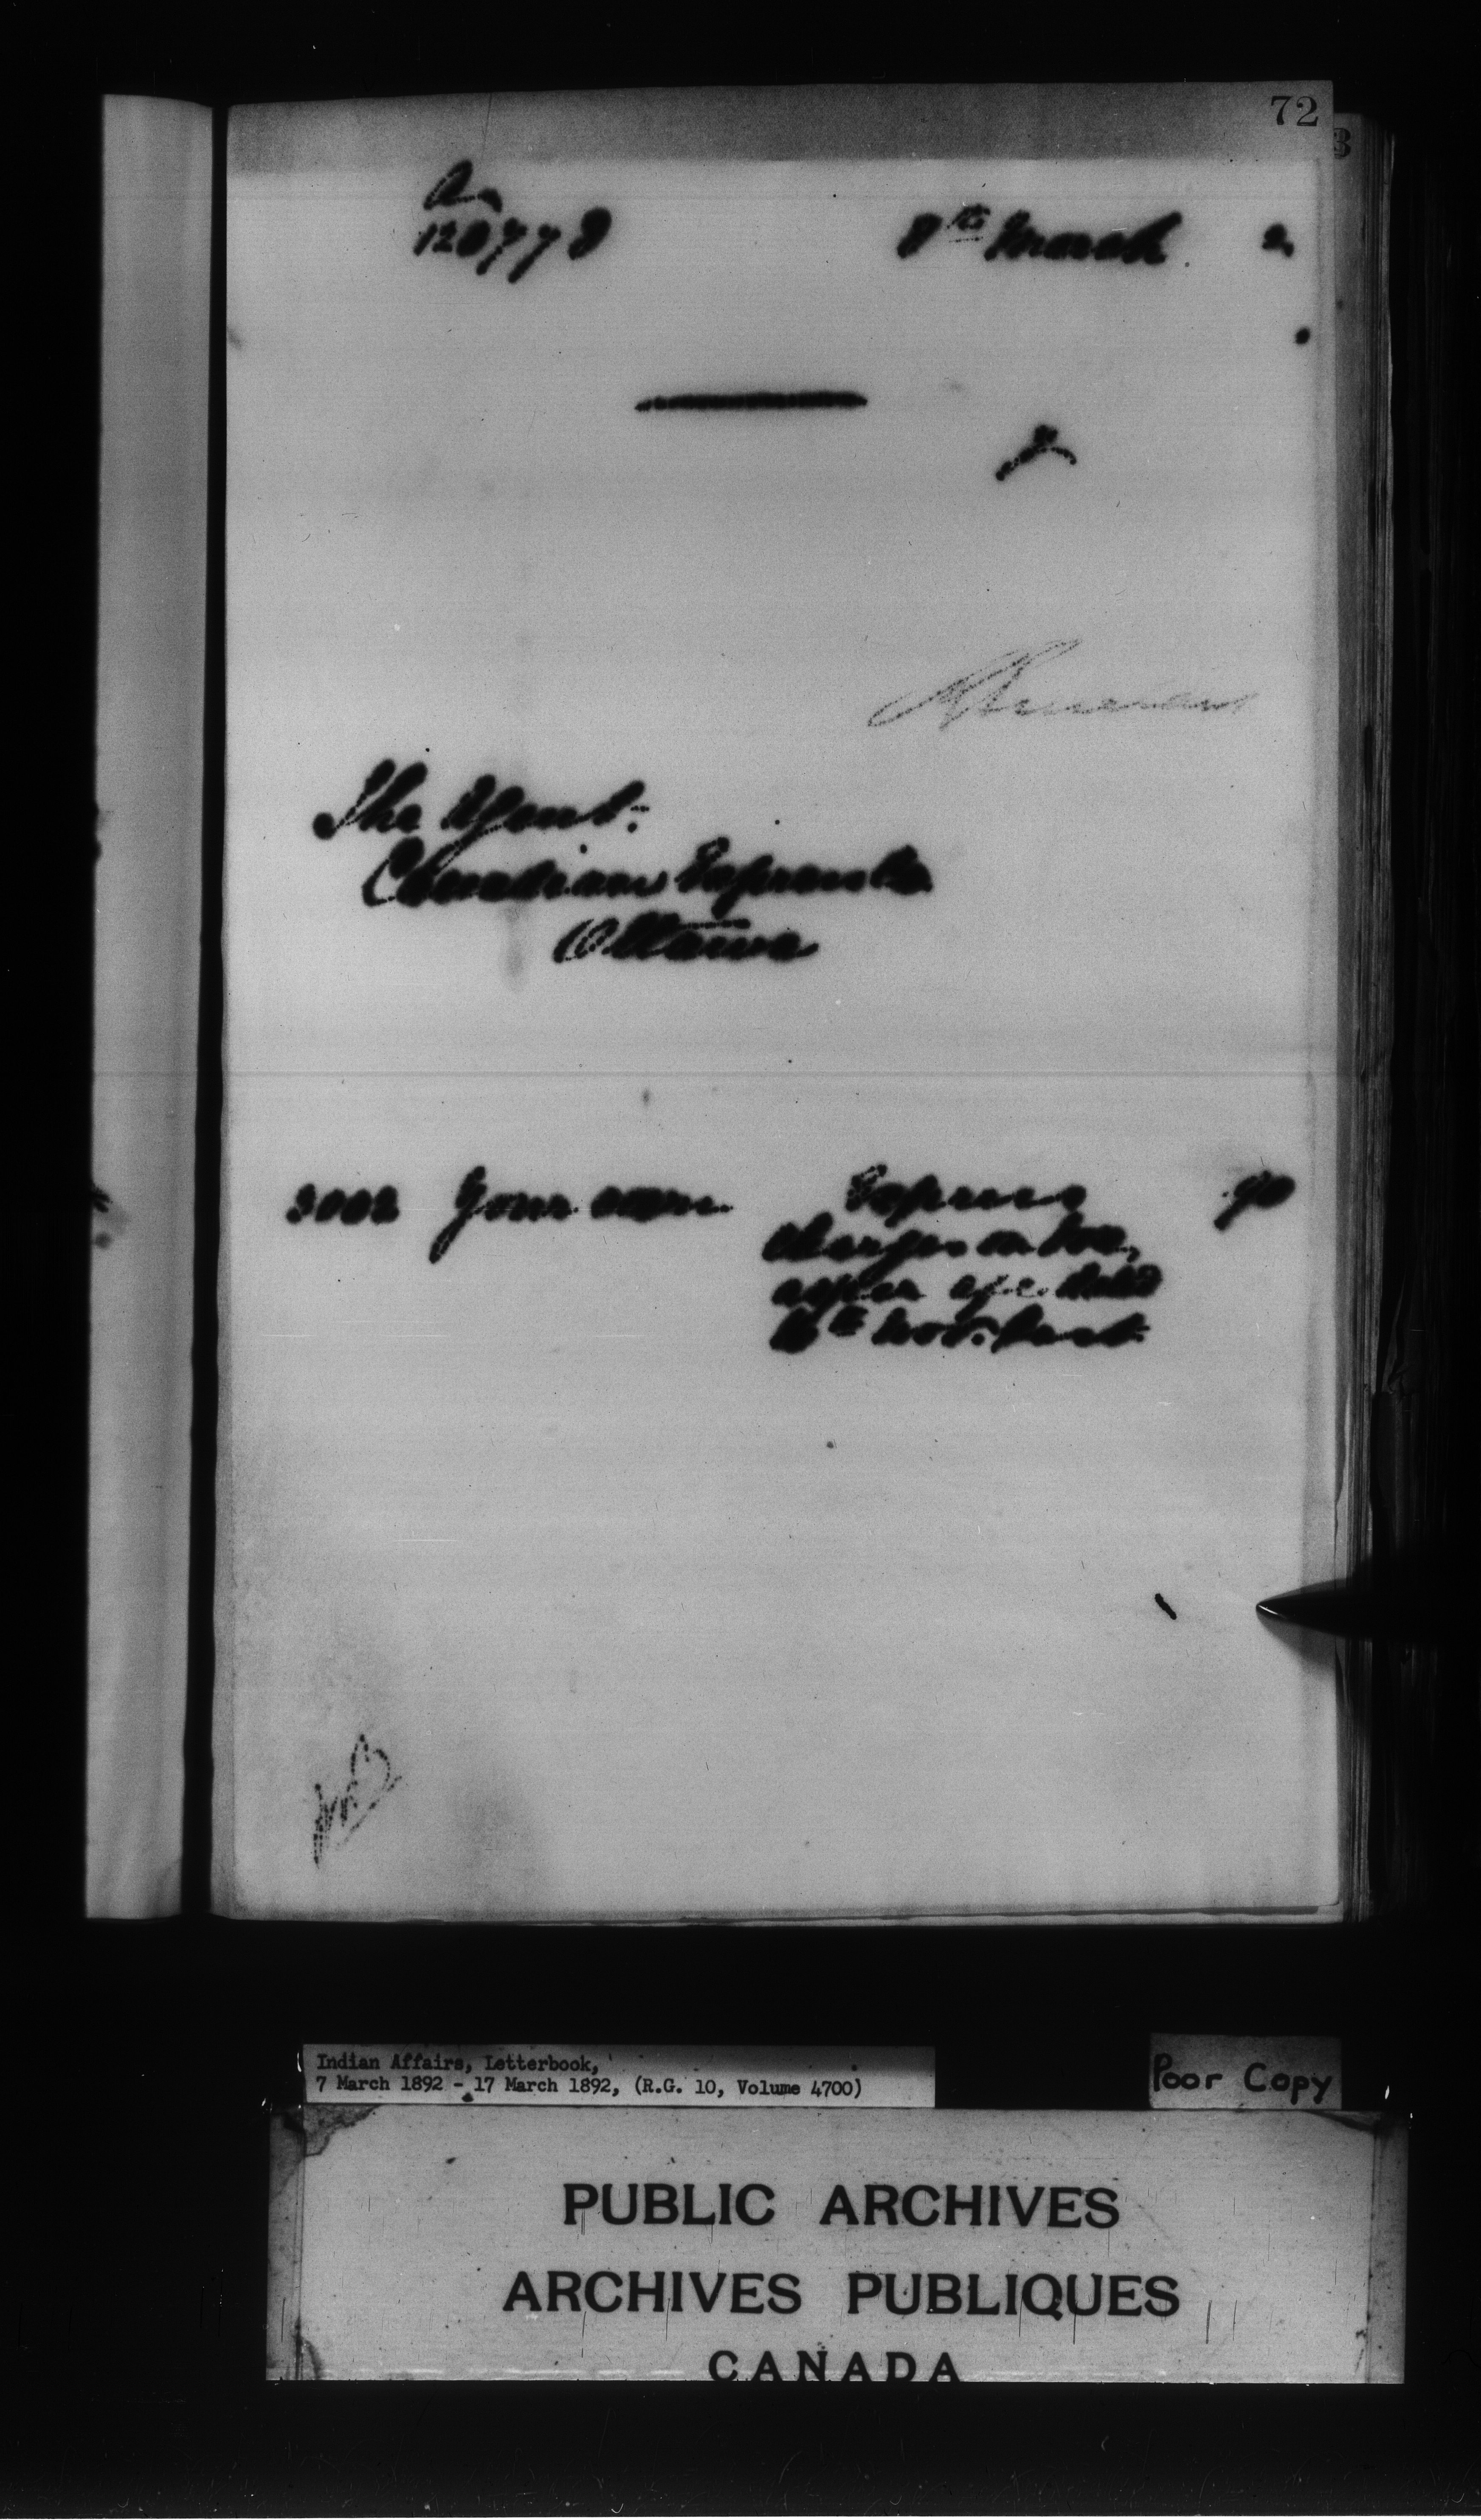 72
3
A
120778
8th March 2
The Agent.
Canadian Express Co.
Ottawa
3002 Your own. Express 90
charges on box,
as per a/c dated
Nov. last.
Indian Affairs, Letterbook,
7 March 1892 - 17 March 1892, (R.G. 10, Volume 4700)
Poor Copy
PUBLIC ARCHIVES
ARCHIVES PUBLIQUES
CANADA